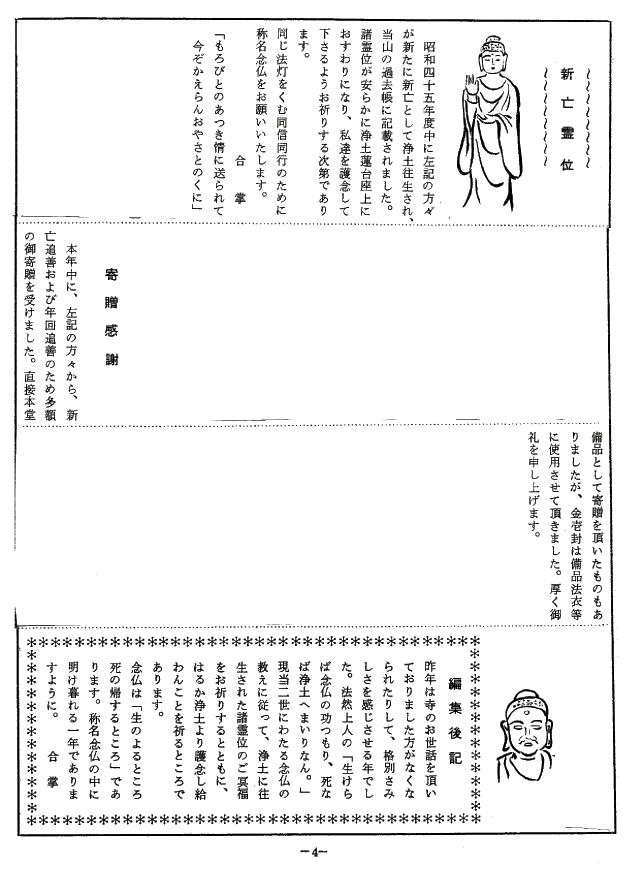 新亡霊位
昭和四十五年度中に左記の方々
が新たに新亡として浄土往生され、
当山の過去帳に記載されました。
諸霊位が安らかに浄土蓮台座上に
おすわりになり、私達を護念して
下さるようお祈りする次第であり
ます。
同じ法灯をくむ同信同行のために
称名念仏をお願いいたします。
合掌
「もろびとのあつき情に送られて
今ぞかえらんおやさとのくに」
寄贈感謝
本年中に、左記の方々から、新
亡追善および年回追善のため多額
の御寄贈を受けました。直接本堂
備品として寄贈を頂いたものもあ
りましたが、金壱封は備品法衣等
に使用させて頂きました。厚く御
礼を申し上げます。
編集後記
昨年は寺のお世話を頂い
ておりました方がなくな
られたりして、格別さみ
しさを感じさせる年でし
た。法然上人の「生けら
ば念仏の功つもり、死な
ば浄土へまいりなん。」
現当二世にわたる念仏の
教えに従って、浄土に往
生された諸霊位のご冥福
をお祈りするとともに、
はるか浄土より護念し給
わんことを祈るところで
あります。
念仏は「生のよるところ
死の帰するところ」であ
ります。称名念仏の中に
明け暮れる一年でありま
すように。 合掌
―4―